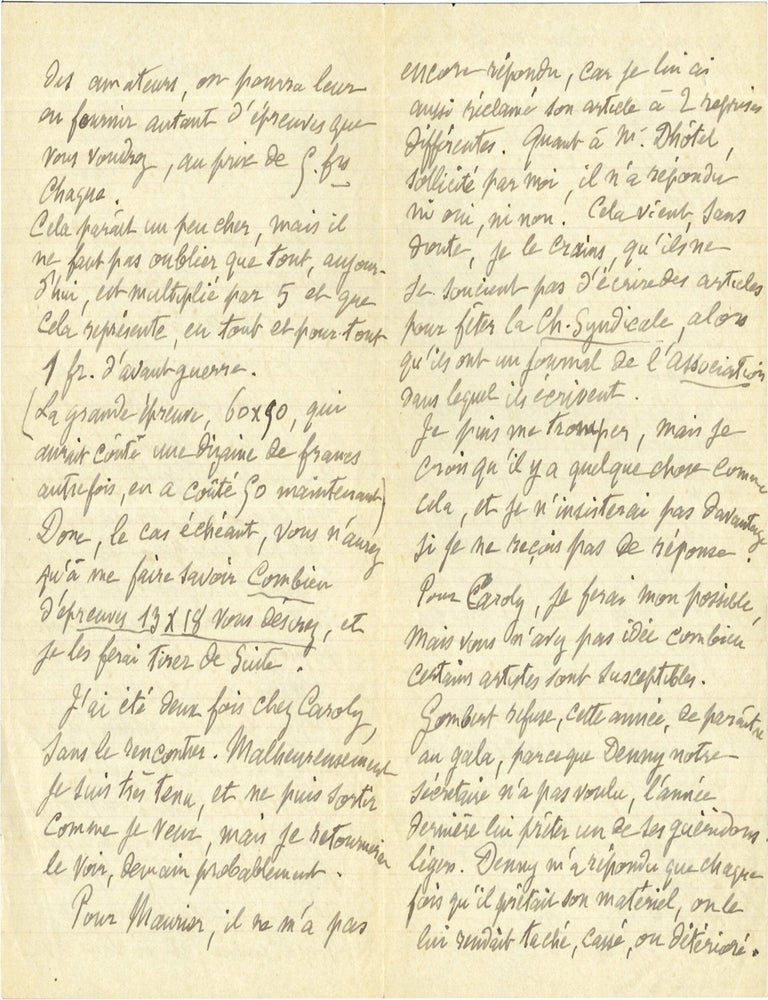 des amateurs, on pourra leur
en fournir autant d'épreuves que
vous voudrez, au prix de 5. frs
chaque.
Cela paraît un peu cher, mais il
ne faut pas oublier que tout, aujour-
d'hui, est multiplié par 5 et que
cela représente, en tout et pour tout
1 fr. d'avant guerre.
(La grande épreuve, 60x90, qui
aurait coûté une dizaine de francs
autrefois, en a coûté 50 maintenant)
Donc, le cas échéant, vous n'aurez
qu'à me faire savoir Combien
d'épreuves 13X18 vous désirez, et
je les ferai tirer de suite.
J'ai été deux fois chez Caroly,
sans le rencontrer. Malheureusement
je suis très tenu, et ne puis sortir
comme je veux, mais je retournerai
le voir, demain probablement.
Pour Maurier, il ne m'a pas
encore répondu, car je lui ai
aussi réclamé son article à 2 reprises
différentes. Quant à Mr. Dhôtel,
sollicité par moi, il n'a répondu
ni oui, ni non. Cela vient, sans
doute, je le crains, qu'ils ne
se soucient pas d'écrire des articles
pour fêter la Ch. Syndicale, alors
qu'ils ont un journal de l'Association
dans lequel ils écrivent.
Je puis me tromper, mais je
crois qu'il y a quelque chose comme
cela, et je n'insisterai pas davantage
si je ne reçois pas de réponse.
Pour Caroly, je ferai mon possible,
mais vous n'avez pas idée combien
certains artistes sont susceptibles.
Gombert refuse, cette année, de paraître
au gala, parceque Denny notre
secrétaire n'a pas voulu, l'année
dernière lui prêter un de ses guéridons
légers. Denny m'a répondu que chaque
fois qu'il prêtait son matériel, on le
lui rendait taché, cassé, ou détérioré.